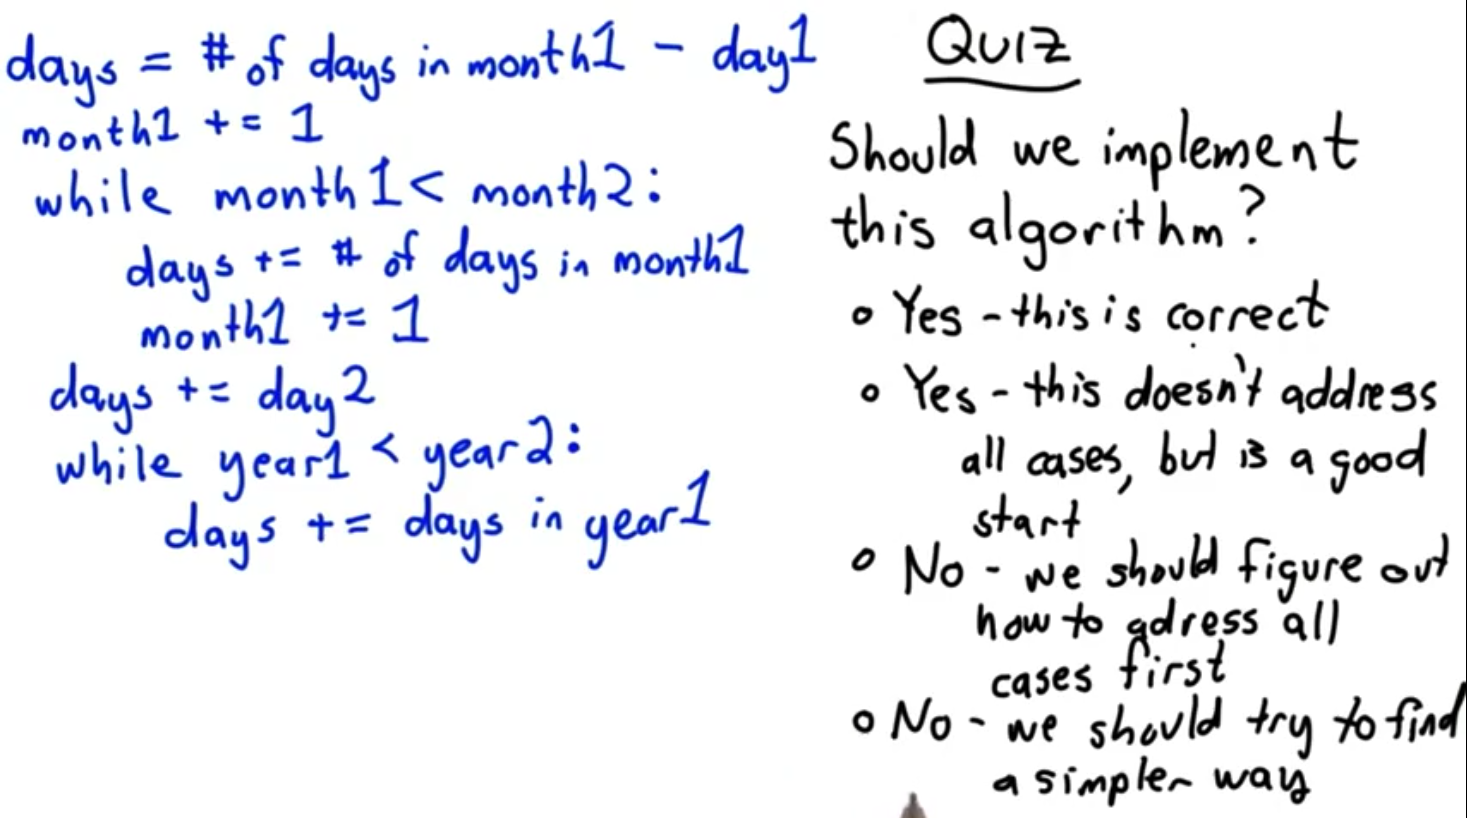 days = # of days in month1 - day1
month1 += 1
while month1 < month2:
days += # of days in month1
month1 += 1
days += day2
while year1 < year2:
days += days in year1
QUIZ
Should we implement
this algorithm?
o Yes - this is correct
o Yes - this doesn't address
all cases, but is a good
start
o No - we should figure out
how to adress all
cases first
o No - we should try to find
a simpler way